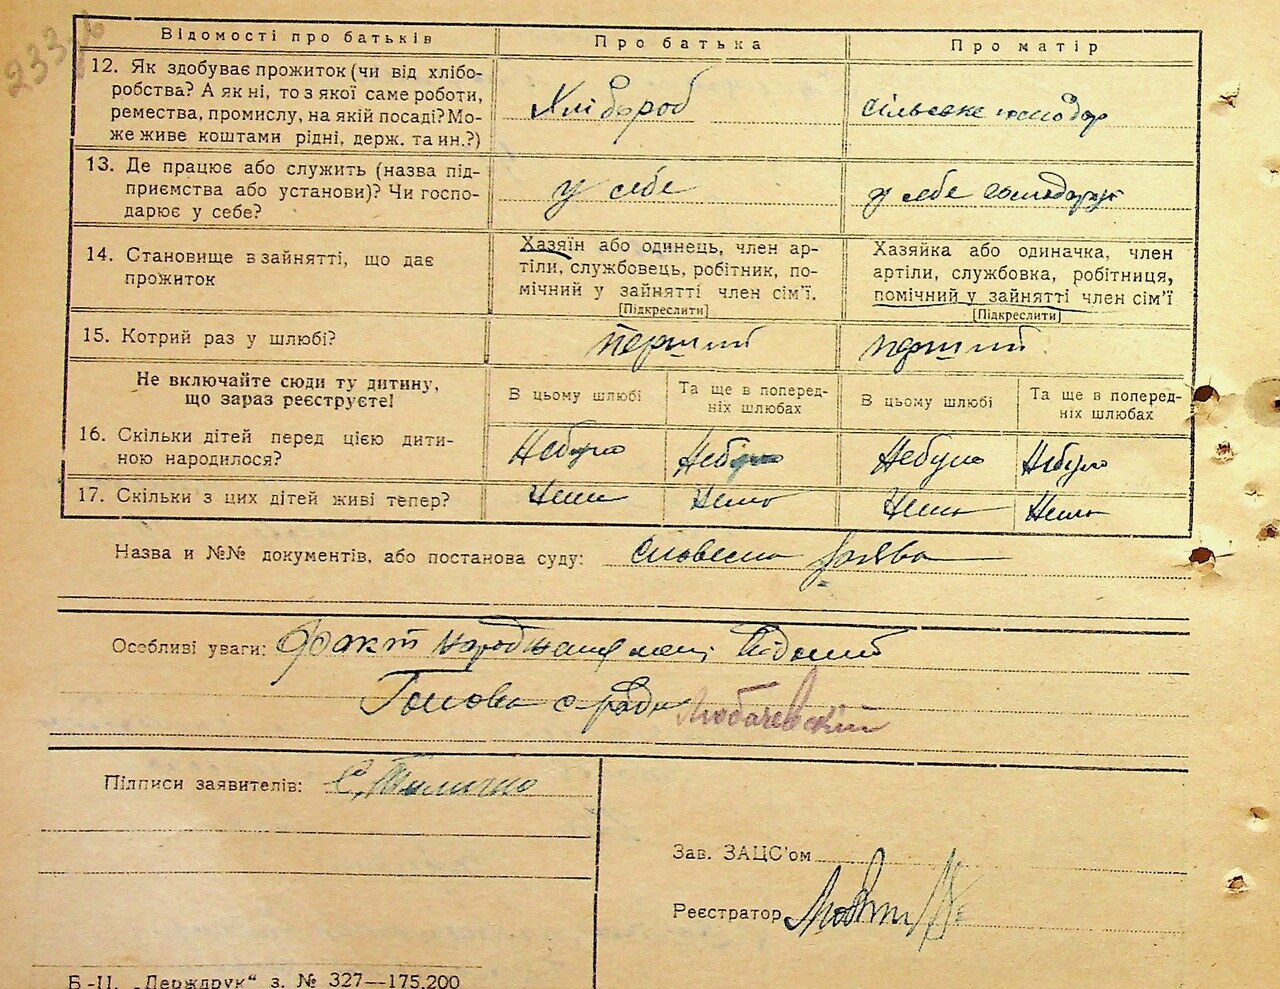 233
Відомості про батьків Про батька Про матір
12. Як здобуває прожиток (чи від хлібо-
робства? А як ні, то з якої саме роботи,
ремества, промислу, на якій посаді? Мо-
же живе коштами рідні, держ. та ин.?)
Хлібороб
сільське господар
13. Де працює або служить (назва під-
приємства або установи)? Чи госпо-
дарює у себе?
у себе
у себе господарує
14. Становище в зайнятті, що дає
прожиток
Хазяїн або одинець, член ар-
тіли, службовець, робітник, по-
мічний у зайнятті член сім'ї.
[Підкреслити]
Хазяйка або одиначка, член
артіли, службовка, робітниця,
помічний у зайнятті член сім'ї
[Підкреслити]
15. Котрий раз у шлюбі?
перший
перший
Не включайте сюди ту дитину,
що зараз реєструєте!
В цьому шлюбі
Та ще в поперед-
ніх шлюбах
В цьому шлюбі
Та ще в поперед-
ніх шлюбах
16. Скільки дітей перед цією дити-
ною народилося?
Небуло Небуло Небуло Небуло
17. Скільки з цих дітей живі тепер?
Нема Нема Нема Нема
Назва и №№ документів, або постанова суду: словесна заява
Особливі уваги: Факт народження мені відомий
Голова с ради Любачевский
Підписи заявителів:
Зав. ЗАЦС'ом
Реєстратор
Б-Ц. „Держдрук“ з. № 327—175.200